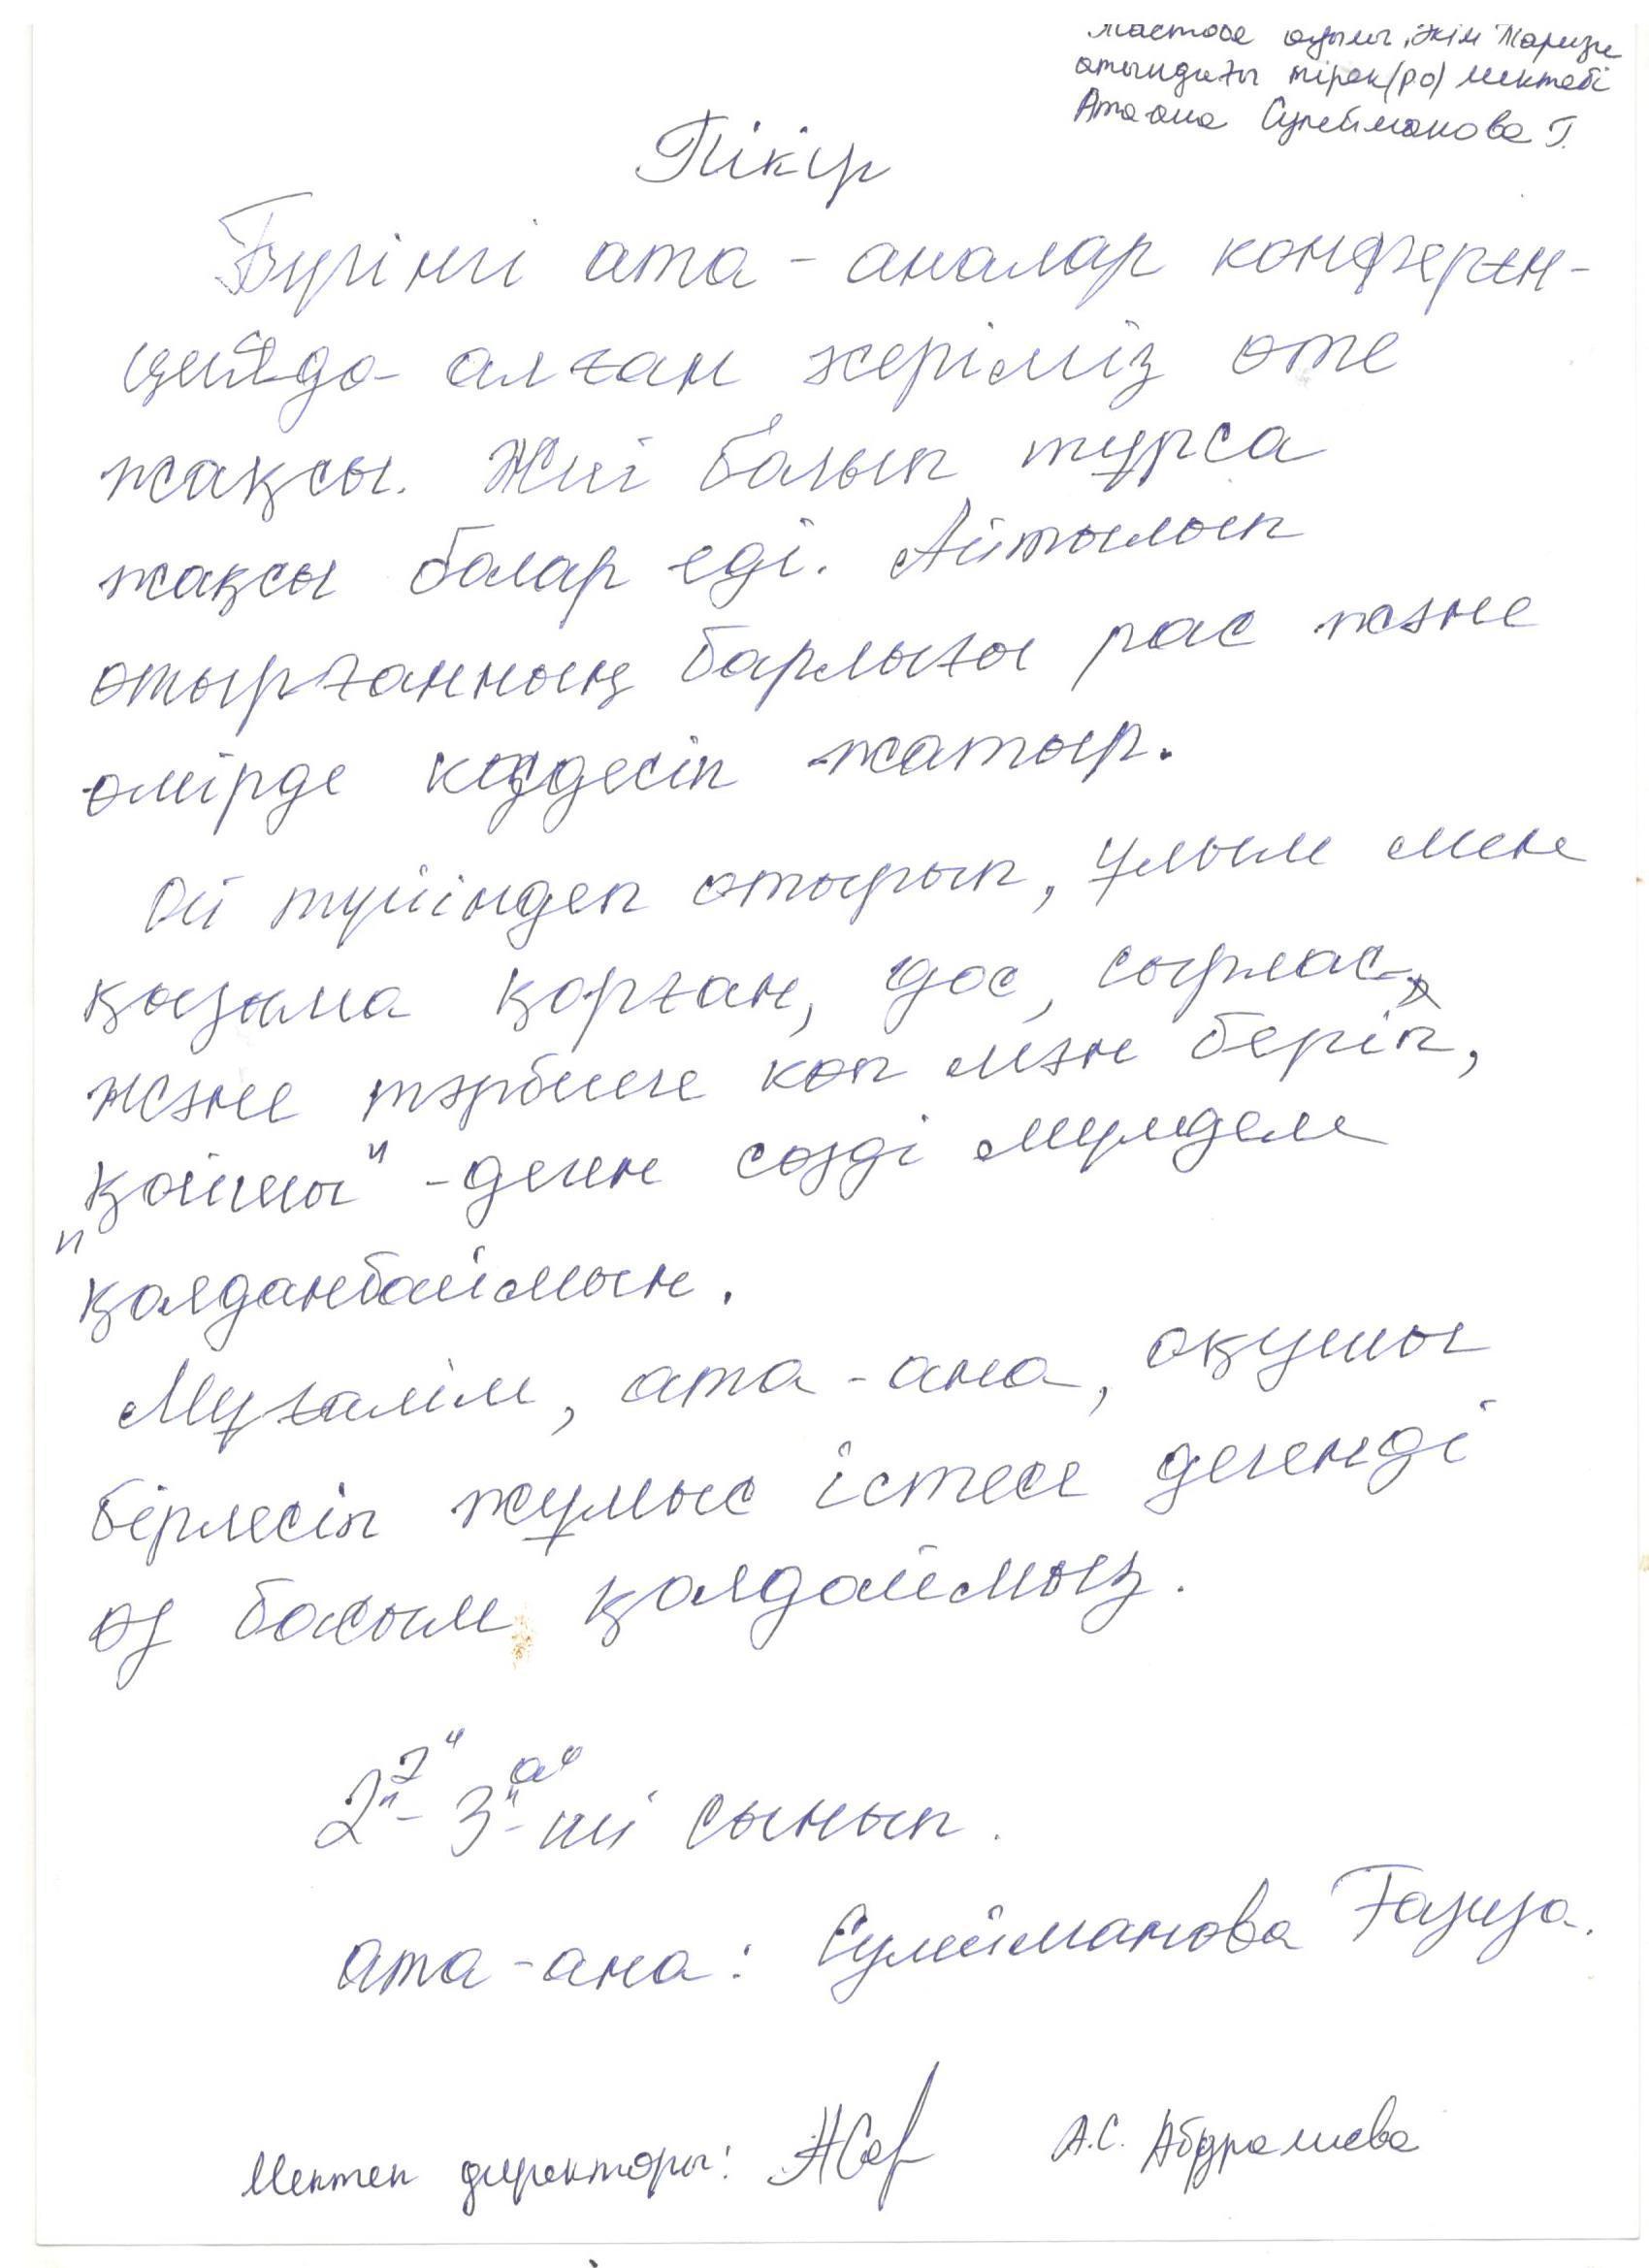 Мастөбе ауылы, Әкім Таразы
атындағы тірек(РО) мектебі
Ата ана Сулейманова Ғ.
Пікір
Бүгінгі ата-аналар конферен-
цияда алған жеріміз өте
жақсы. Жиі болып тұрса
жақсы болар еді. Айтылып
отырғанның барлығы рас және
өмірде кездесіп жатыр.
Ой түйіндеп отырып, ұлым мен
қызыма қорған, дос, сырлас,
және тәрбиеге көп мән беріп,
"қойшы" -деген сөзді мүлдем
қолданбаймын.
Мұғалім, ата-ана, оқушы
бірлесіп жұмыс істесе дегенді
өз басым қолдаймыз.
2 - 3 "а" -ші сынып.
ата-ана: Сулейманова Ғазиза.
Мектеп директоры: А.С. Абдралиева